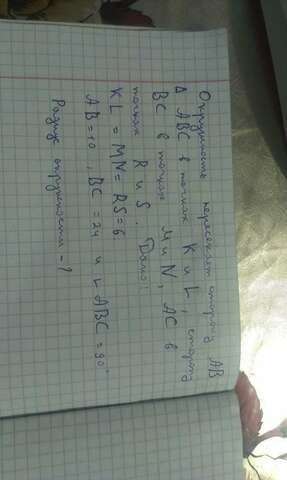 Окружность пересекает сторону AB
Δ ABC в точках K и L, сторону
BC в точках M и N, AC в
точках R и S. Дано:
KL = MN = RS = 6
AB = 10, BC = 24 и ∠ABC = 90°
Радиус окружности - ?